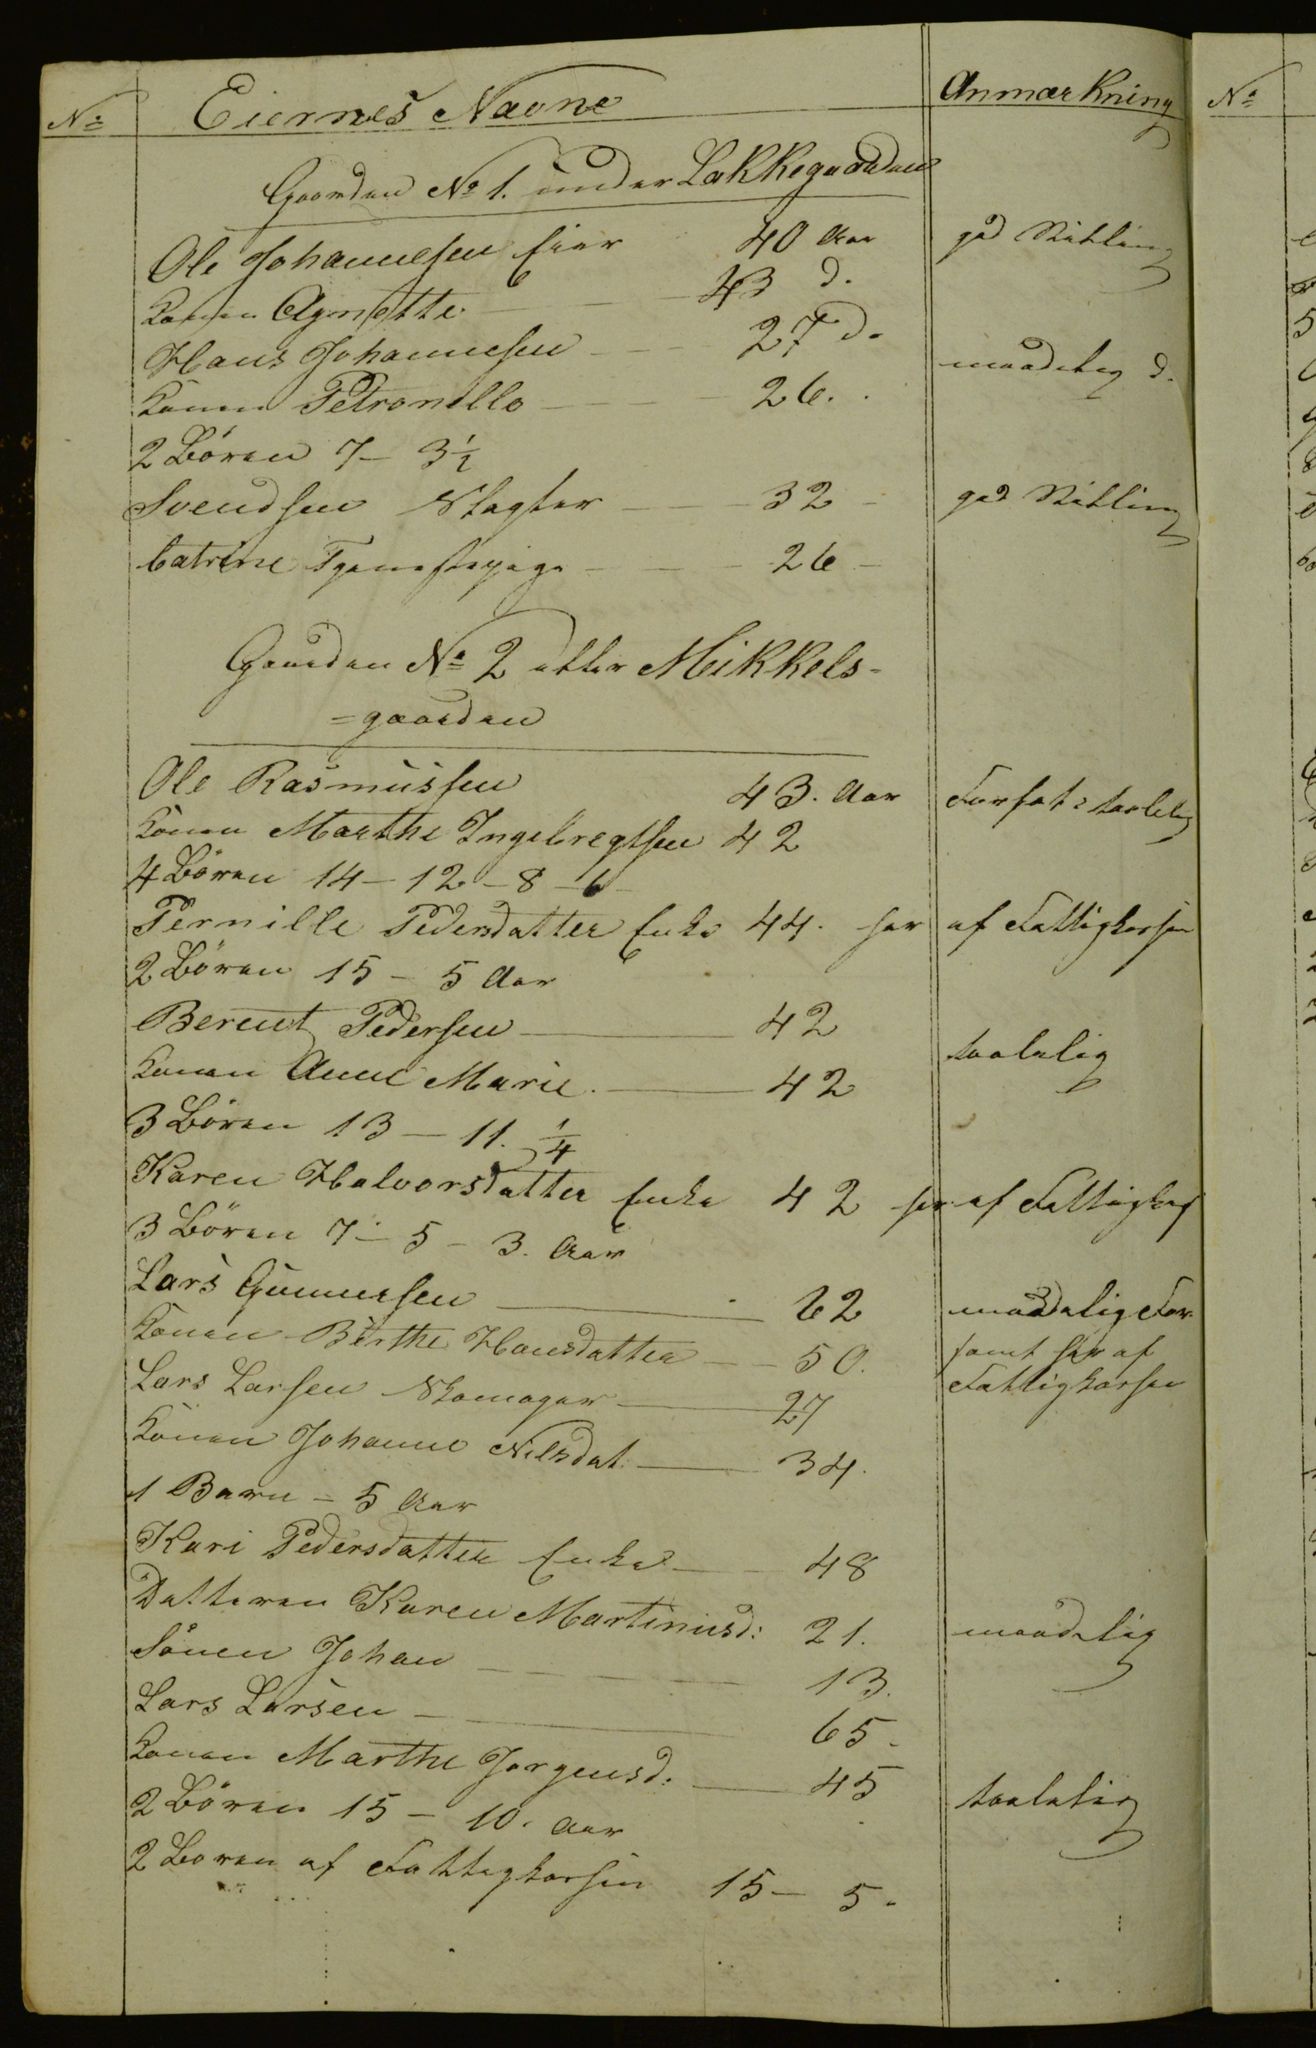 No Eiernes Navne Anmærkning No
Gaarden No 1. under Lakkegaarden
Ole Johannesen Eier 40 Aar god Stilling
Konen Agnette 43 do.
Hans Johannesen 27 do. maadelig do.
Konen Petronille 26.
2 Börn 7 - 3 1/2
Svendsen Slagter 32 god Stilling
Catrine Tjenestepige 26
Gaarden No 2 eller Mikkels-
=gaarden
Ole Rasmussen 43. Aar Forfat: taalelig
Konen Marthe Ingebregtsen 42
4 Börn 14 - 12 - 8 - 6
Pernille Pedersdatter Enke 44. har af Fattigkassen
2 Börn 15 - 5 Aar
Berent Pedersen 42 taalelig
Konen Anne Marie 42
3 Börn 13 - 11. 1/4
Karen Halvorsdatter Enke 42 har af Fattigkas
3 Börn 7 - 5 - 3. Aar
Lars Gunnersen 62 maadelig For
Konen Berthe Hansdatter 50. samt har af
Lars Larsen Skomager 27 Fattigkassen
Konen Johanne Nilsdat. 34.
1 Barn - 5 Aar
Kari Pedersdatter Enke 48
Datteren Karen Martinusd: 21. maadelig
Sönen Johan 13.
Lars Larsen 65.
Konen Marthe Jorgensd. 45 taalelig
2 Börn 15 - 10. Aar
2 Boren af Fattigkassen 15 - 5.